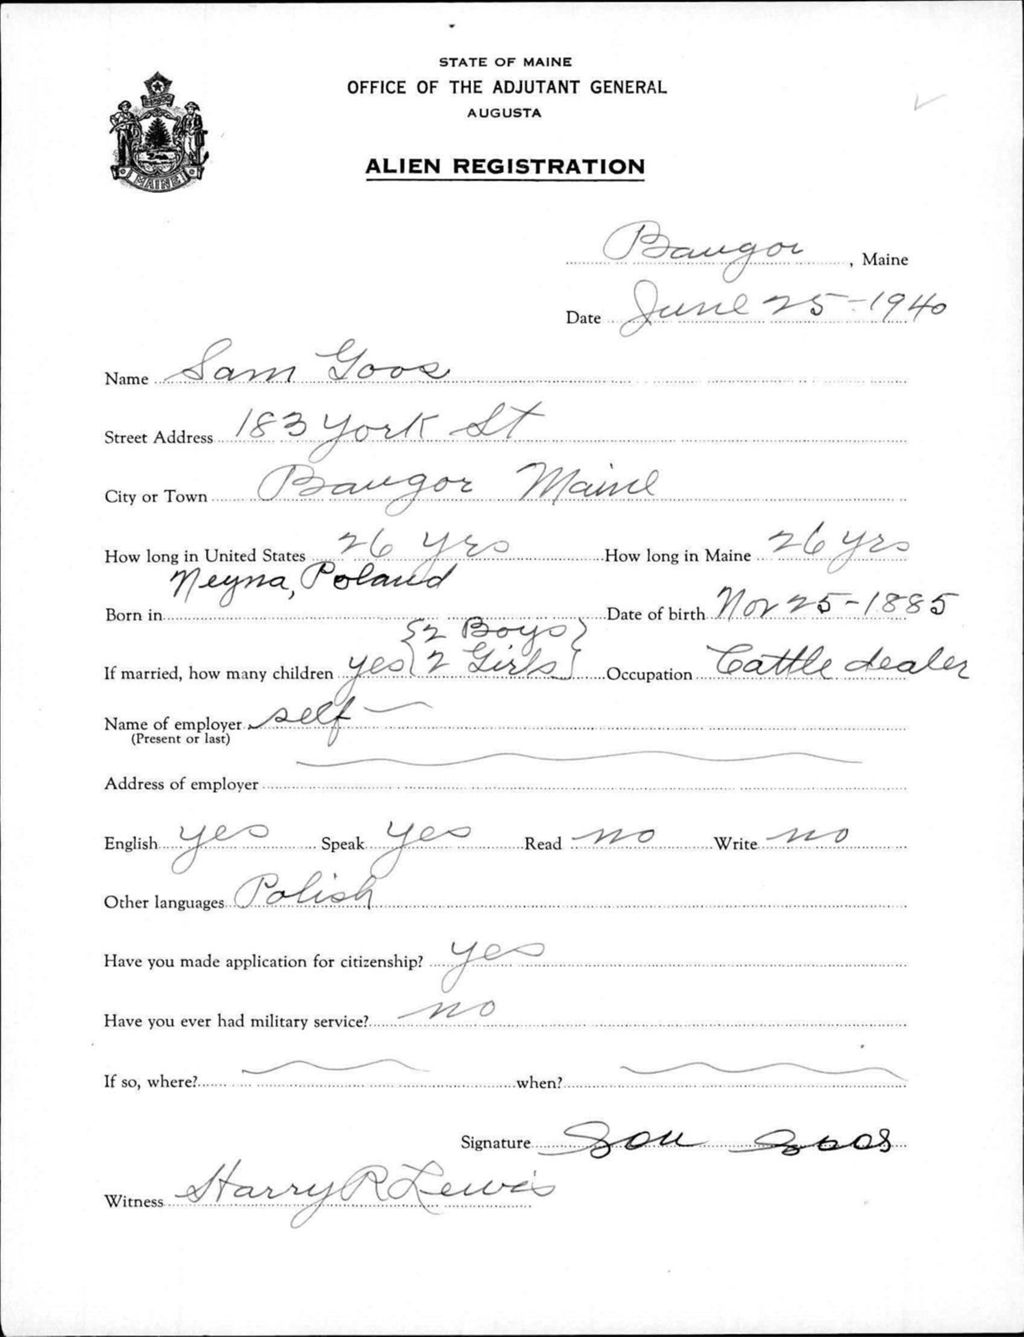 STATE OF MAINE
OFFICE OF THE ADJUTANT GENERAL
AUGUSTA
ALIEN REGISTRATION
MAINE
Bangor, Maine
Date June 25-1940
Name Sam Goos
Street Address 183 York St
City or Town Bangor Maine
How long in United States 26 yrs How long in Maine 26 yrs
Born in Neyna, Poland Date of birth Nov 25-1885
If married, how many children yes { 2 Boys 2 Girls } Occupation Cattle dealer
Name of employer self
(Present or last)
Address of employer
English yes Speak yes Read no Write no
Other languages Polish
Have you made application for citizenship? yes
Have you ever had military service? no
If so, where? when?
Signature Goos
Witness Harry R Lewis